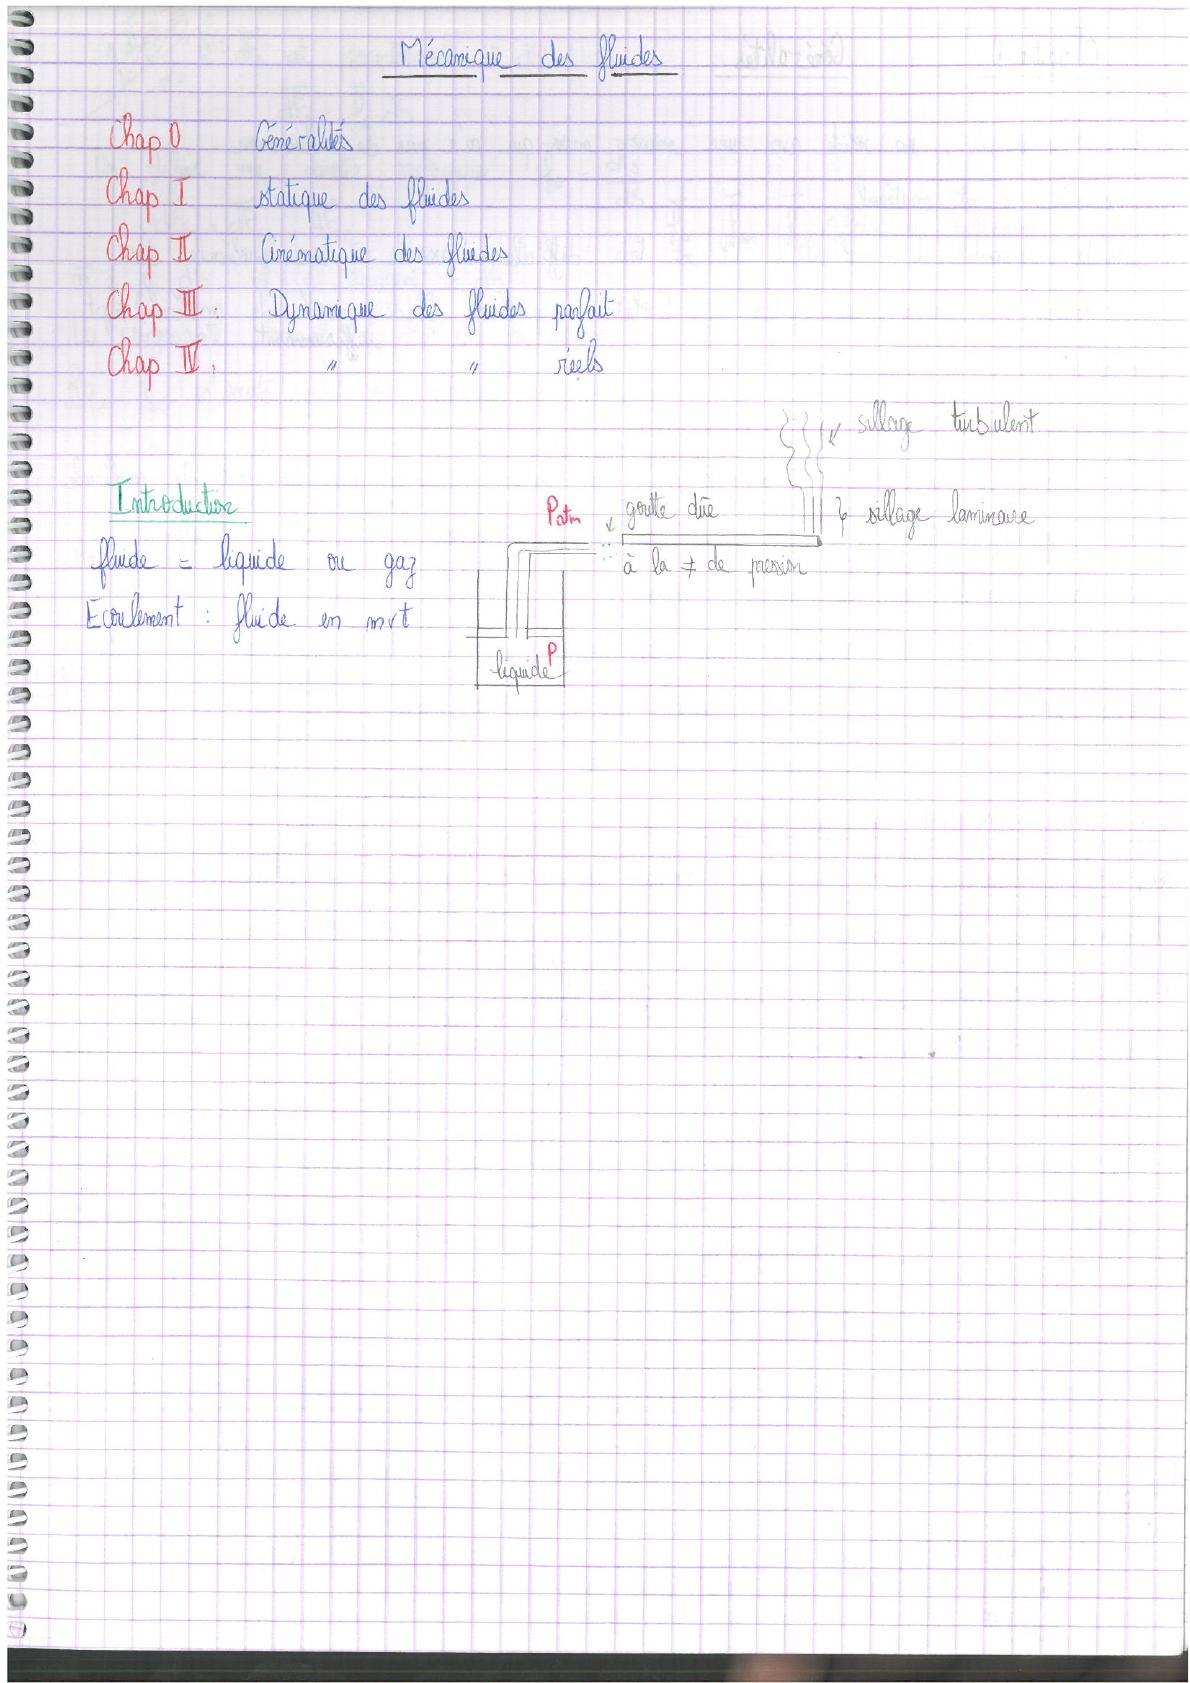 Mécanique des fluides
Chap 0 Généralités
Chap I statique des fluides
Chap II Cinématique des fluides
Chap III : Dynamique des fluides parfait
Chap IV : " " réels
sillage turbulent
Introduction
Patm goutte dûe
sillage laminaire
fluide = liquide ou gaz
à la ≠ de pression
Ecoulement : fluide en mvt
P
liquide